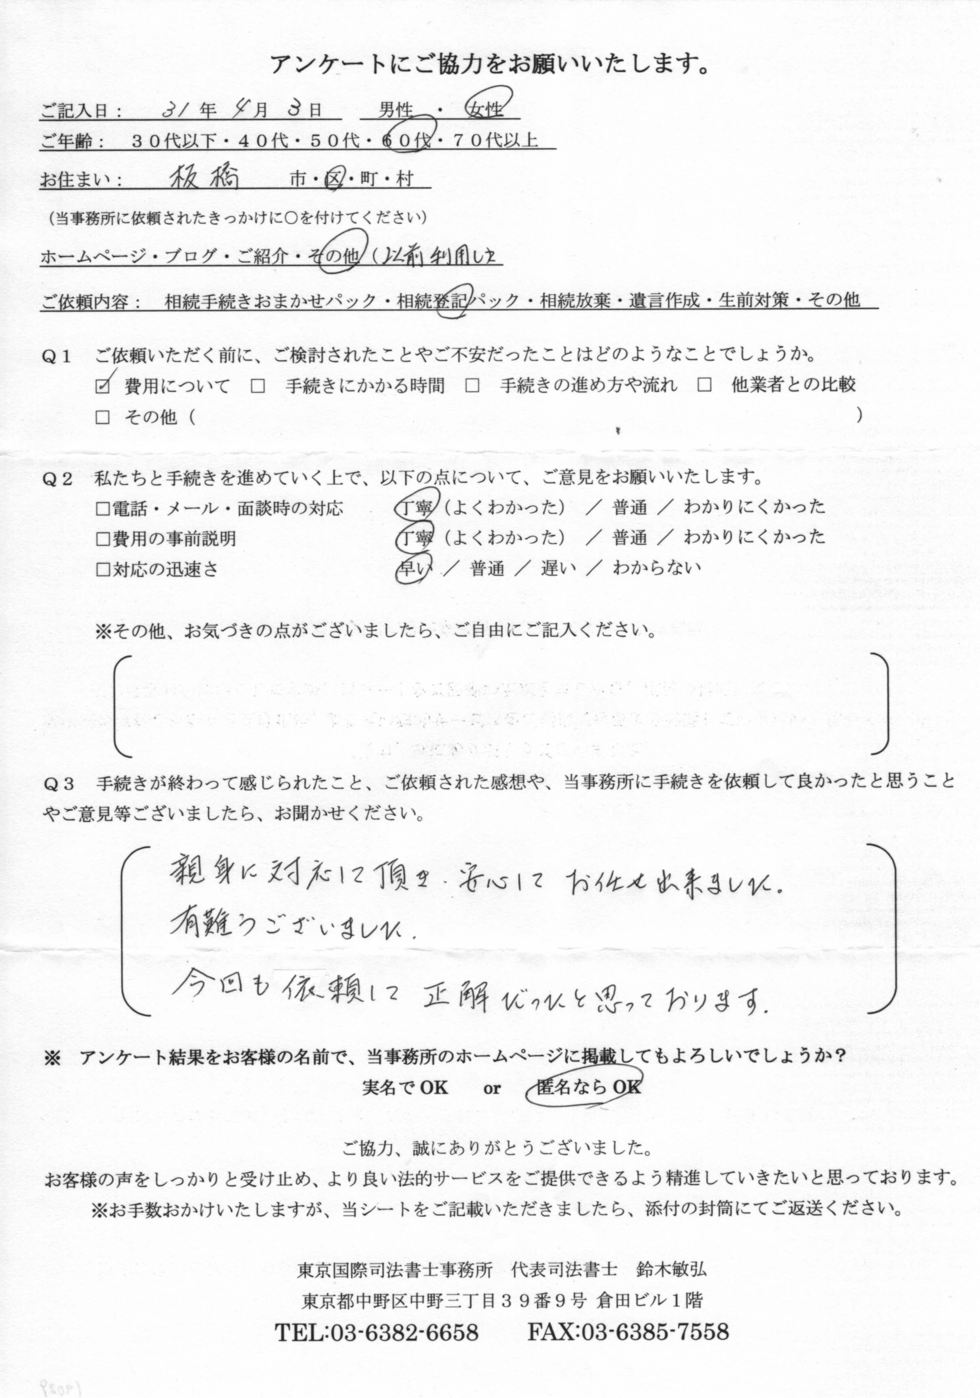 アンケートにご協力をお願いいたします。
ご記入日： 31年 4月 3日 男性 ・ 女性
ご年齢： 30代以下・40代・50代・60代・70代以上
お住まい： 板橋 市・区・町・村
（当事務所に依頼されたきっかけに○を付けてください）
ホームページ・ブログ・ご紹介・その他（以前利用した
ご依頼内容： 相続手続きおまかせパック・相続登記パック・相続放棄・遺言作成・生前対策・その他
Q1 ご依頼いただく前に、ご検討されたことやご不安だったことはどのようなことでしょうか。
☑ 費用について □ 手続きにかかる時間 □ 手続きの進め方や流れ □ 他業者との比較
□ その他（ ）
Q2 私たちと手続きを進めていく上で、以下の点について、ご意見をお願いいたします。
□電話・メール・面談時の対応 丁寧（よくわかった） ／ 普通 ／ わかりにくかった
□費用の事前説明 丁寧（よくわかった） ／ 普通 ／ わかりにくかった
□対応の迅速さ 早い ／ 普通 ／ 遅い ／ わからない
※その他、お気づきの点がございましたら、ご自由にご記入ください。
Q3 手続きが終わって感じられたこと、ご依頼された感想や、当事務所に手続きを依頼して良かったと思うこと
やご意見等ございましたら、お聞かせください。
親身に対応して頂き、安心して お任せ出来ました。
有難うございました。
今回も依頼して正解だったと思っております。
※ アンケート結果をお客様の名前で、当事務所のホームページに掲載してもよろしいでしょうか？
実名でOK or 匿名ならOK
ご協力、誠にありがとうございました。
お客様の声をしっかりと受け止め、より良い法的サービスをご提供できるよう精進していきたいと思っております。
※お手数おかけいたしますが、当シートをご記載いただきましたら、添付の封筒にてご返送ください。
東京国際司法書士事務所 代表司法書士 鈴木敏弘
東京都中野区中野三丁目39番9号 倉田ビル1階
TEL:03-6382-6658 FAX:03-6385-7558